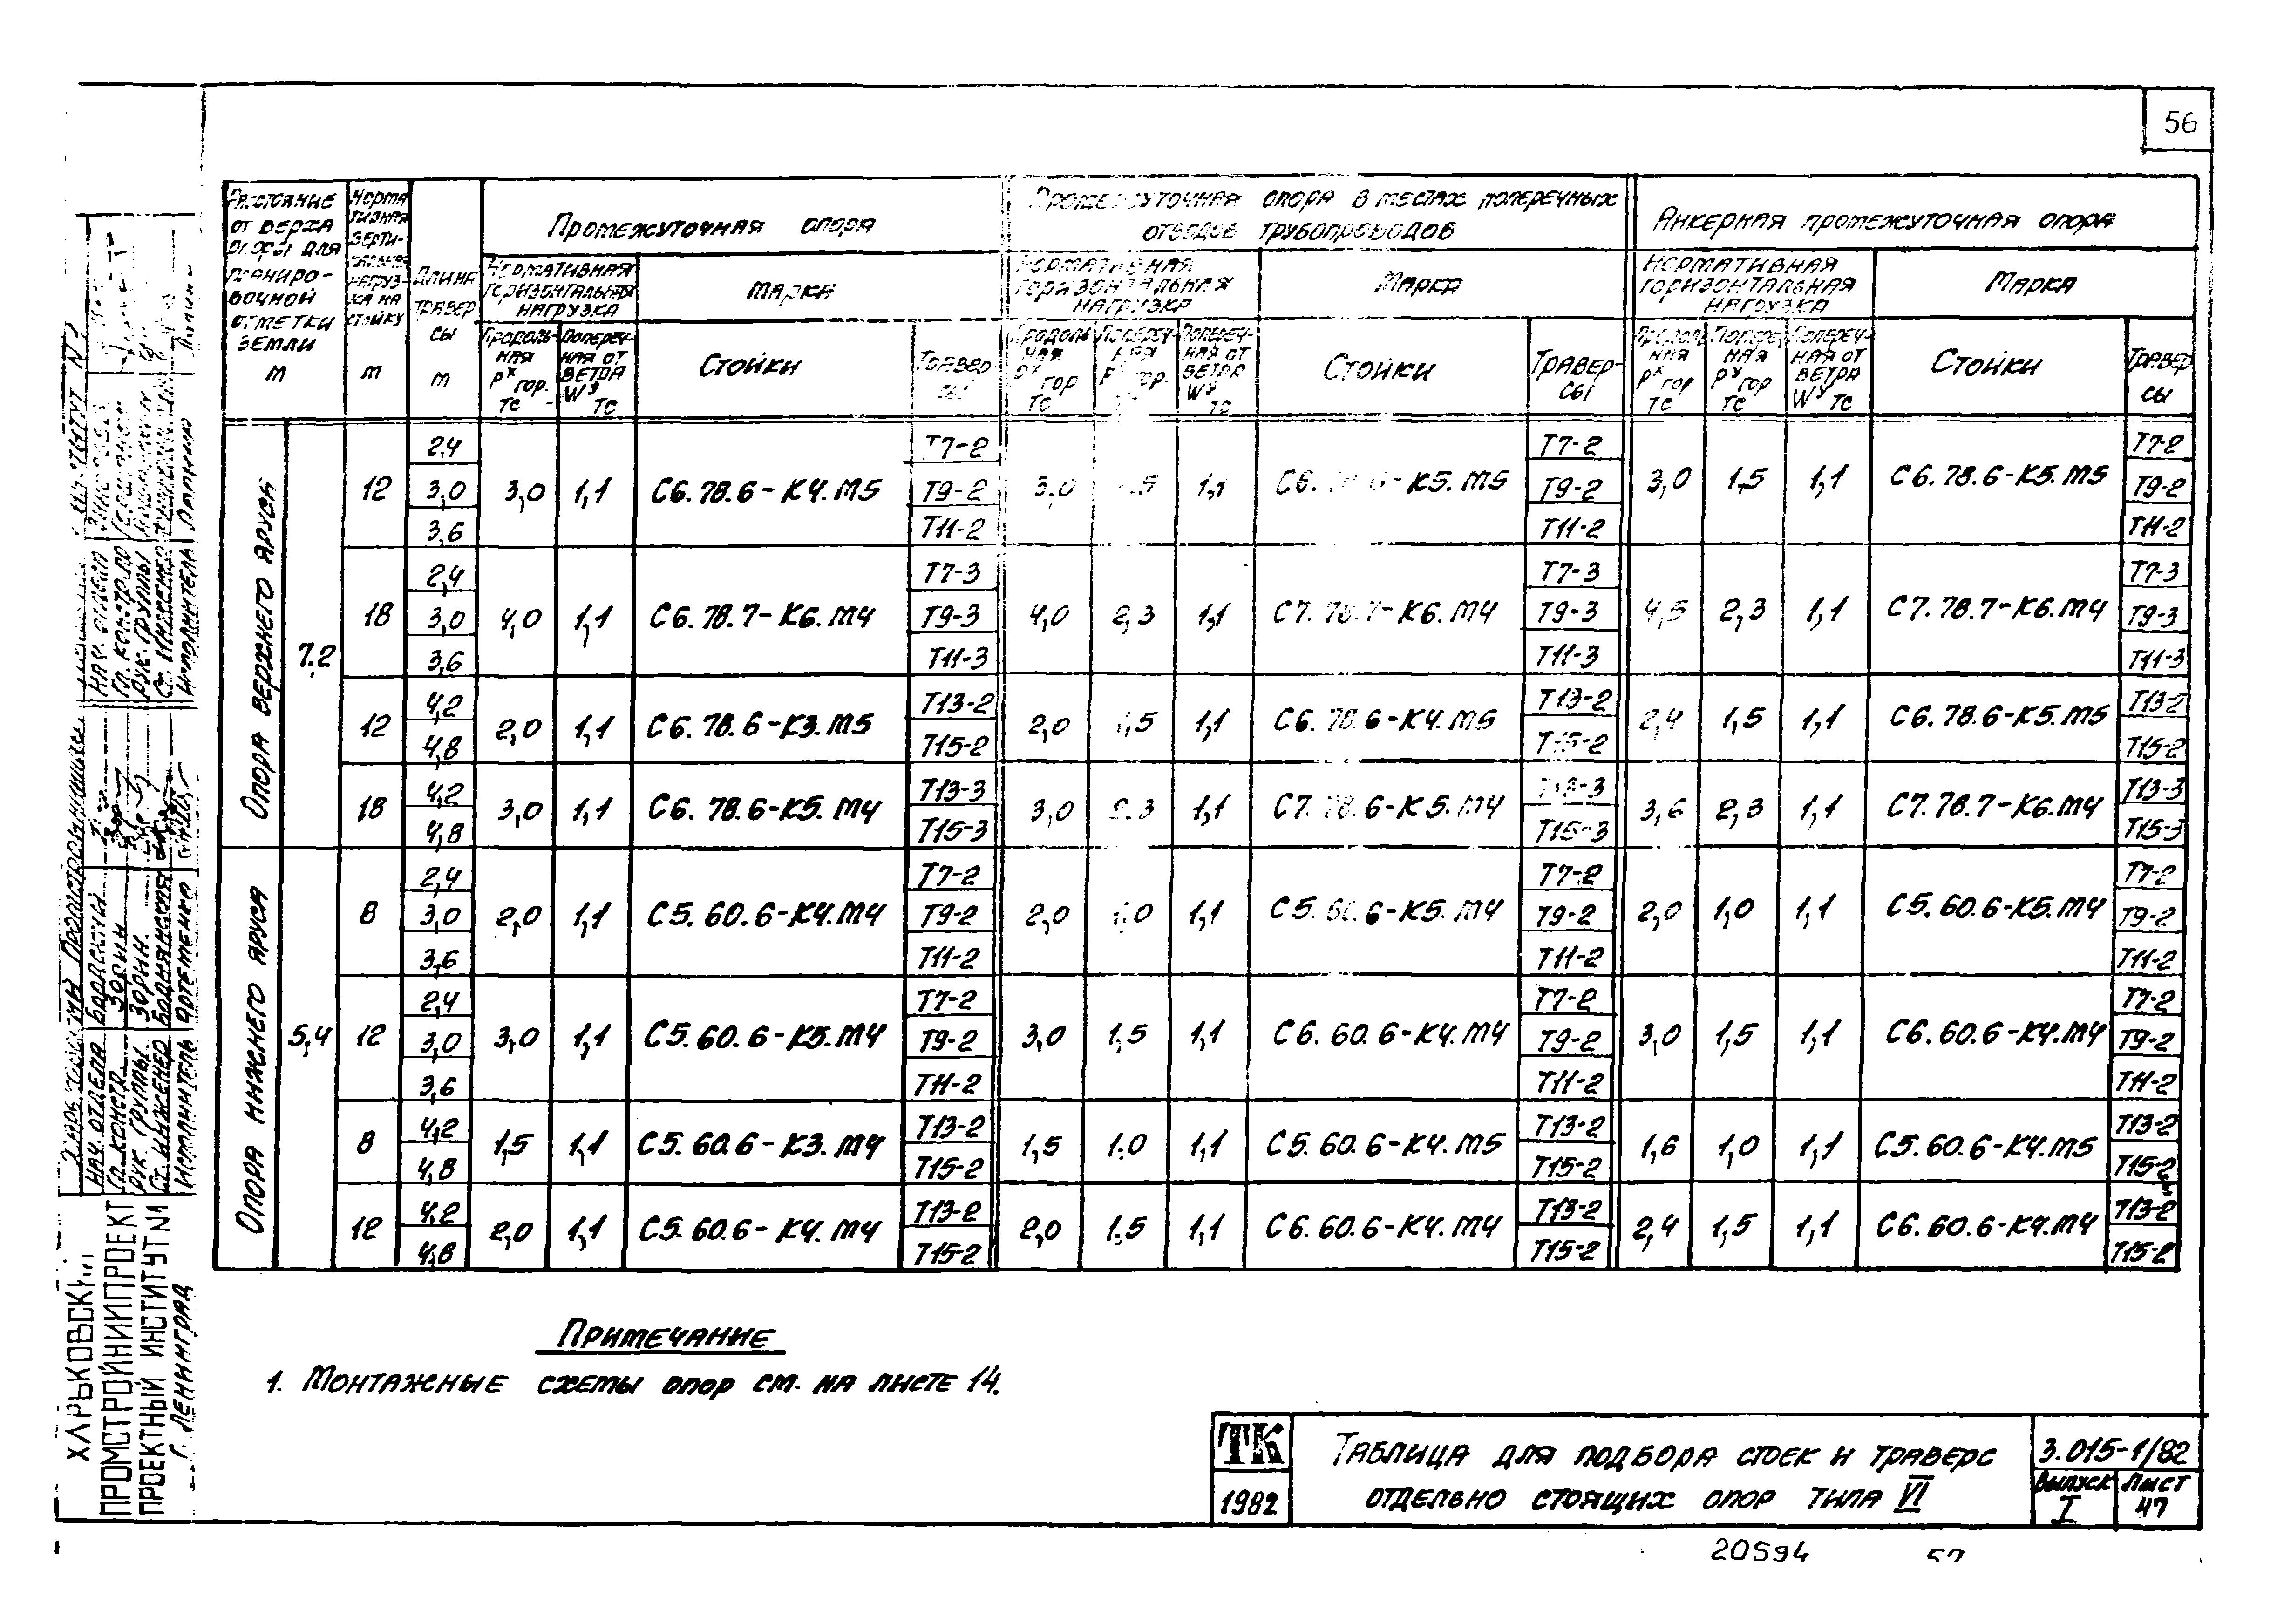 56
Расстояние от верха опоры для планировочной отметки земли м
Нормативная вертикальная нагрузка на стойку т
Длина траверсы м
Промежуточная опора
Промежуточная опора в местах поперечных отводов трубопроводов
Анкерная промежуточная опора
Нормативная горизонтальная нагрузка
Марка
Нормативная горизонтальная нагрузка
Марка
Нормативная горизонтальная нагрузка
Марка
Продольная Рˣ гор. тс
Поперечная от ветра Wʸ тс
Стойки
Траверсы
Продольная Рˣ гор тс
Поперечная Рʸ гор. тс
Поперечная от ветра Wʸ тс
Стойки
Траверсы
Продольная Рˣ гор тс
Поперечная Рʸ гор тс
Поперечная от ветра Wʸ тс
Стойки
Траверсы
Опора верхнего яруса
7,2
12 2,4 3,0 1,1 С6.78.6-К4.М5 Т7-2 3,0 1,5 1,1 С6.78.6-К5.М5 Т7-2 3,0 1,5 1,1 С6.78.6-К5.М5 Т7-2
3,0 Т9-2 Т9-2 Т9-2
3,6 Т11-2 Т11-2 Т11-2
18 2,4 4,0 1,1 С6.78.7-К6.М4 Т7-3 4,0 2,3 1,1 С7.78.7-К6.М4 Т7-3 4,5 2,3 1,1 С7.78.7-К6.М4 Т7-3
3,0 Т9-3 Т9-3 Т9-3
3,6 Т11-3 Т11-3 Т11-3
12 4,2 2,0 1,1 С6.78.6-К3.М5 Т13-2 2,0 1,5 1,1 С6.78.6-К4.М5 Т13-2 2,4 1,5 1,1 С6.78.6-К5.М5 Т13-2
4,8 Т15-2 Т15-2 Т15-2
18 4,2 3,0 1,1 С6.78.6-К5.М4 Т13-3 3,0 2,3 1,1 С7.78.6-К5.М4 Т13-3 3,6 2,3 1,1 С7.78.7-К6.М4 Т13-3
4,8 Т15-3 Т15-3 Т15-3
Опора нижнего яруса
5,4
8 2,4 2,0 1,1 С5.60.6-К4.М4 Т7-2 2,0 1,0 1,1 С5.60.6-К5.М4 Т7-2 2,0 1,0 1,1 С5.60.6-К5.М4 Т7-2
3,0 Т9-2 Т9-2 Т9-2
3,6 Т11-2 Т11-2 Т11-2
12 2,4 3,0 1,1 С5.60.6-К5.М4 Т7-2 3,0 1,5 1,1 С6.60.6-К4.М4 Т7-2 3,0 1,5 1,1 С6.60.6-К4.М4 Т7-2
3,0 Т9-2 Т9-2 Т9-2
3,6 Т11-2 Т11-2 Т11-2
8 4,2 1,5 1,1 С5.60.6-К3.М4 Т13-2 1,5 1,0 1,1 С5.60.6-К4.М5 Т13-2 1,6 1,0 1,1 С5.60.6-К4.М5 Т13-2
4,8 Т15-2 Т15-2 Т15-2
12 4,2 2,0 1,1 С5.60.6-К4.М4 Т13-2 2,0 1,5 1,1 С6.60.6-К4.М4 Т13-2 2,4 1,5 1,1 С6.60.6-К4.М4 Т13-2
4,8 Т15-2 Т15-2 Т15-2
Примечание
1. Монтажные схемы опор см. на листе 14.
ТК
1982
Таблица для подбора стоек и траверс
отдельно стоящих опор типа VI
3.015-1/82
Выпуск I
Лист 47
20594
57
ПРОМСТРОЙНИИПРОЕКТ
ПРОЕКТНЫЙ ИНСТИТУТ N1
г. ЛЕНИНГРАД
Нач. отдела
Гл. констр.
Рук. группы
Ст. инженер
Исполнитель
Зорин
Зорин.
Артеменко
Нач. отдела
Гл. констр.
Рук. группы
Ст. инженер
Исполнитель